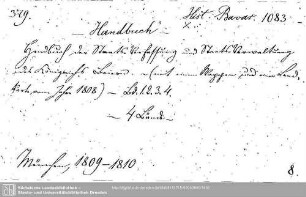 379.
Hist. Bavar. 1083
– Handbuch –
Handbuch der Staats-Verfassung und Staats-Verwaltung
des Königreichs Baiern – (mit Wappen, und
vom Jahr 1808) – Bd. 1. 2. 3. 4.
– 4 Bände –
München, 1809–1810
8.
Sächsische Landesbibliothek –
Staats- und Universitätsbibliothek Dresden